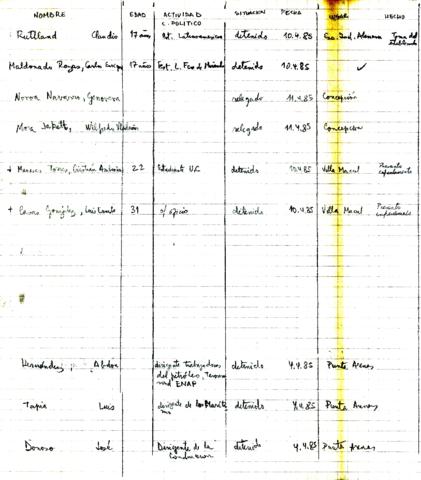 NOMBRE EDAD ACTIVIDAD C. POLITICO SITUACION FECHA LUGAR HECHO
Ruttland Claudio 17 años Est. Latinoamericano detenido 10.4.85 Toma del
Maldonado Rojas, Carlos Enrique 17 años Est. L. Fco de Miranda detenido 10.4.85 ✓
Novoa Navarro, Genoveva relegado 11.4.85 Concepción
Mora Wilfredo relegado 11.4.85 Concepcion
+ Torres, Cristian 22 Estudiante UC detenido 10.4.85 Villa Macul Presunto enfrentamiento
+ González, Luis 31 s/ oficio detenido 10.4.85 Villa Macul Presunto enfrentamiento
Hernández, Abdón dirigente trabajadores detenido 4.4.85 Punta Arenas
del petróleo,
ENAP
Tapia Luis dirigente de los detenido 4.4.85 Punta Arenas
Donoso José Dirigente de la detenido 4.4.85 Punta Arenas
Construccion